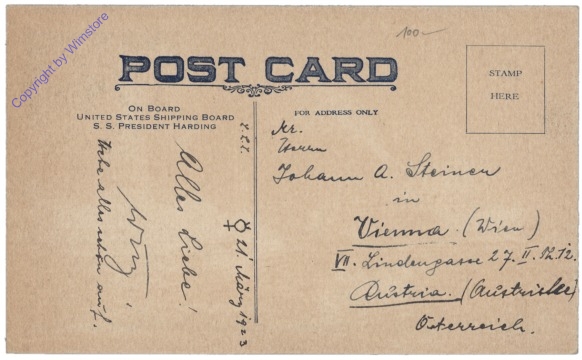 Copyright by Wimstore
100-
POST CARD
STAMP
HERE
ON BOARD
UNITED STATES SHIPPING BOARD
S. S. PRESIDENT HARDING
FOR ADDRESS ONLY
Herrn
Johann A. Steiner
in
Vienna (Wien)
VII. Lindengasse 27. II.
Austria.
Österreich.
♀ 21. März 1923
Alles Liebe!
Hebe alles schön auf.